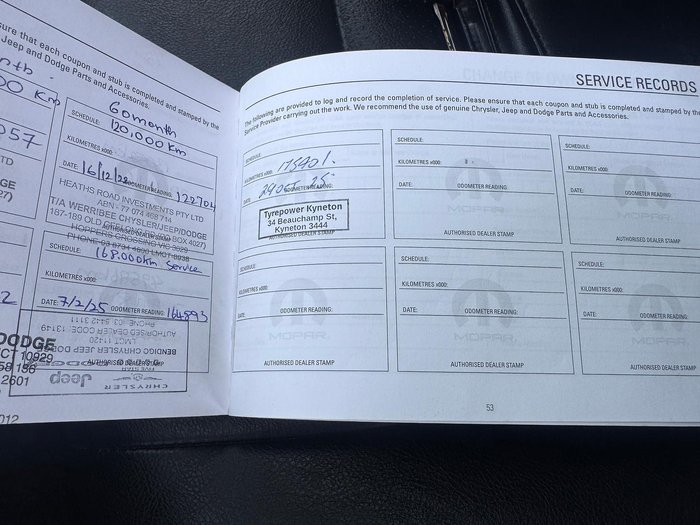 sure that each coupon and stub is completed and stamped by the
Jeep and Dodge Parts and Accessories.
60 month
SCHEDULE: 120,000 Km
KILOMETRES x000:
DATE: 16/12/22 ODOMETER READING: 122704
HEATHS ROAD INVESTMENTS PTY LTD
ABN - 77 074 468 714
T/A WERRIBEE CHYSLER/JEEP/DODGE
SCHEDULE:
168.000km Service
KILOMETRES x000:
DATE: 7/2/25 ODOMETER READING: 164893
AUTHORISED DEALER STAMP
CHRYSLER
Jeep
BENDIGO CHRYSLER JEEP DODGE
LMCT 11420
AUTHORISED DEALER CODE 13149
PHONE: (03) 5442 3111
057
TD
DGE
27)
DODGE
CT 10929
2601
012
SERVICE RECORDS
The following are provided to log and record the completion of service. Please ensure that each coupon and stub is completed and stamped by the
Service Provider carrying out the work. We recommend the use of genuine Chrysler, Jeep and Dodge Parts and Accessories.
SCHEDULE:
KILOMETRES x000:
DATE: ODOMETER READING:
Tyrepower Kyneton
34 Beauchamp St,
Kyneton 3444
AUTHORISED DEALER STAMP
SCHEDULE:
KILOMETRES x000:
DATE: ODOMETER READING:
MOPAR
AUTHORISED DEALER STAMP
SCHEDULE:
KILOMETRES x000:
DATE: ODOMETER READING:
MOPAR
AUTHORISED DEALER STAMP
SCHEDULE:
KILOMETRES x000:
DATE: ODOMETER READING:
MOPAR
AUTHORISED DEALER STAMP
SCHEDULE:
KILOMETRES x000:
DATE: ODOMETER READING:
MOPAR
AUTHORISED DEALER STAMP
SCHEDULE:
KILOMETRES x000:
DATE: ODOMETER READING:
MOPAR
AUTHORISED DEALER STAMP
53